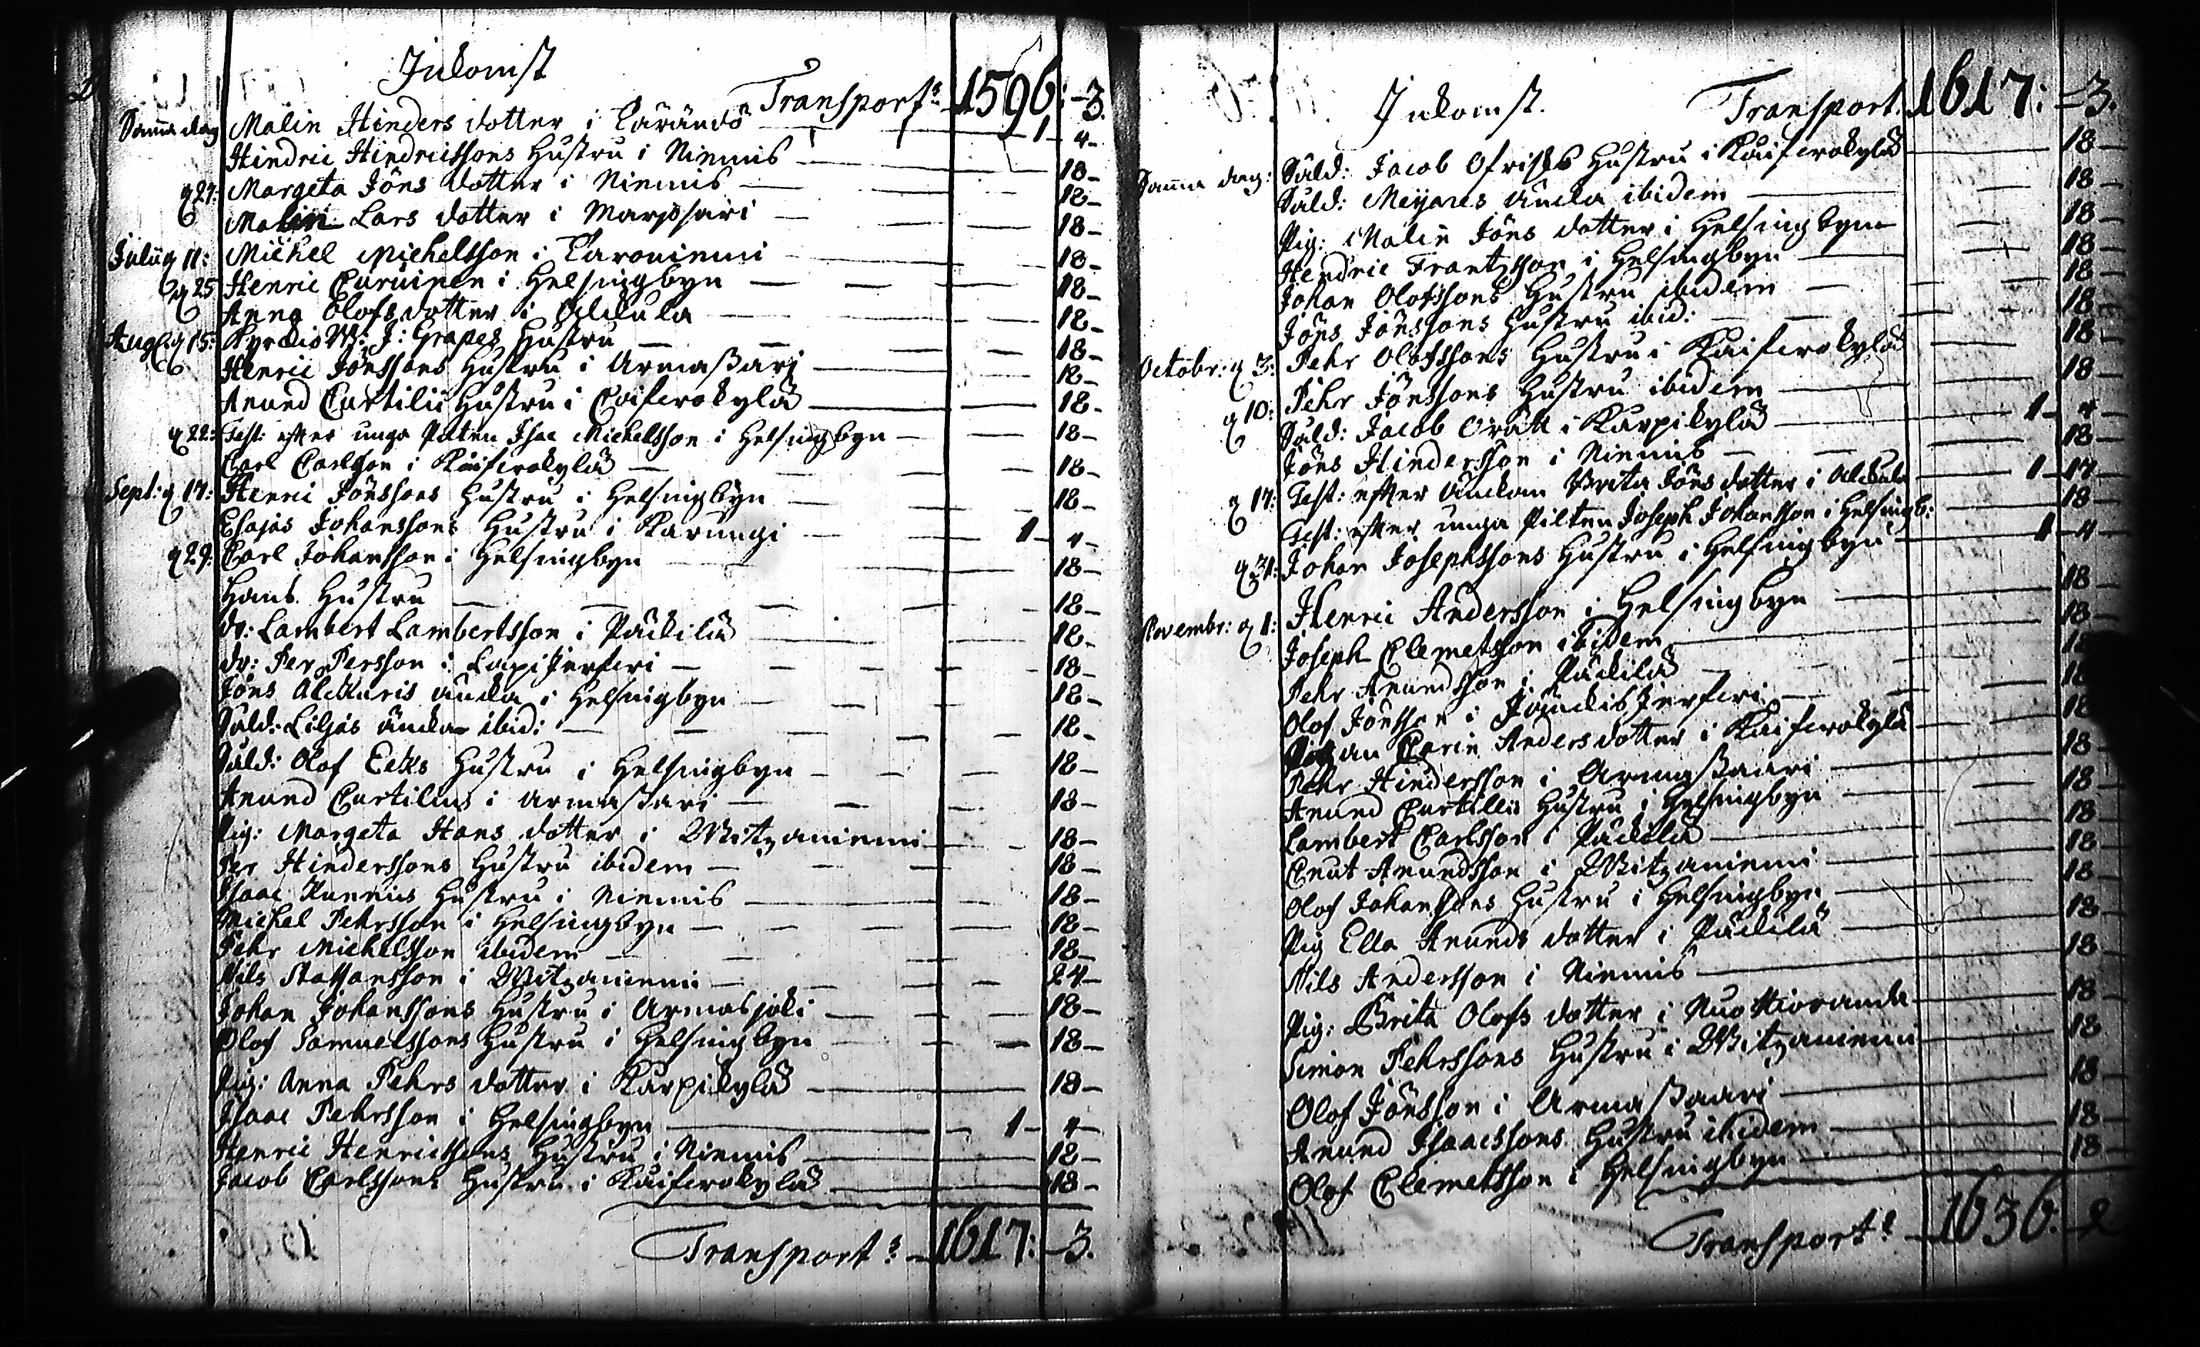 Inkomst
Transport 1596: -3.
Samma dag Malin Hinders dotter i Tärändö 1 - 4 -
Hindric Hindricssons Hustru i Niemis 18 -
27: Margeta Jöns dotter i Niemis 18 -
Malin Lars dotter i Marjosari 18 -
Julii 11: Michel Michelsson i Taroniemi 18 -
25 Henric i Helsingbyn 18 -
Anna Olofs dotter i Alkula 18 -
Aug: 15: Kyrckio W: J: Grapes Hustru 18 -
Henric Jönssons Hustru i Armaßari 18 -
Anund Curtilii Hustru i Coiferokylä 18 -
22: Test: efter unga Pilten Isac Michelsson i Helsingbyn 18 -
Carl Carlsson i Kaiferokylä 18 -
Sept: 17: Henri Jönssons Hustru i Helsingbyn 18 -
Esajas Johanssons Hustru i Karungi 1 - 4 -
29: Carl Johansson i Helsingbyn 18 -
Hans Hustru 18 -
dr: Lambert Lambertsson i Päckilä 18 -
dr: Per Persson i Lapijerferi 18 -
Jöns Alckuris äncka i Helsingbyn 18 -
Såld: Liljas äncka ibid: 18 -
Såld: Olof Ecks Hustru i Helsingbyn 18 -
Anund Curtilius i Armaßari 18 -
Pig: Margeta Hans dotter i Witzaniemi 18 -
Per Hinderssons Hustru ibidem 18 -
Isaac Hustru i Niemis 18 -
Michel Pehrsson i Helsingbyn 18 -
Pehr Michelsson ibidem 18 -
Nils Staffansson i Witzaniemi 24 -
Johan Johanssons Hustru i Armasjoki 18 -
Olof Samuelssons Hustru i Helsingbyn 18 -
Pig: Anna Pehrs dotter i Karpikylä 18 -
Isaac Pehrsson i Helsingbyn 1 - 4 -
Henric Henricssons Hustru i Niemis 18 -
Jacob Carlssons Hustru i Kaiferokylä 18 -
Transport 1617: -3.
Inkomst.
Transport. 1617: -3.
Samma dag: Såld: Jacob Ofrisks Hustru i Kaiferokylä 18
Såld: Meyares äncka ibidem 18
Pig: Malin Jöns dotter i Helsingbyn 18
Hendric Frantzsson i Helsingbyn 18
Johan Olofssons Hustru ibidem 18
Jöns Jönssons Hustru ibid: 18
Octobr: 3: Pehr Olofssons Hustru i Kaiferokylä 18
Pehr Jönssons Hustru ibidem 18
10: Såld: Jacob i Karpikylä 1 - 4 -
Jöns Hindersson i Niemis 18
17: Test: efter änckan Brita Jöns dotter i Alckula 1 - 17
Test: efter unga Pilten Joseph Johansson i Helsingb: 18
31: Johan Josephssons Hustru i Helsingbyn 1 - 4 -
Novembr: 1: Henric Andersson i Helsingbyn 18
Joseph Clemetsson ibidem 18
Pehr Anundsson i Päckilä 18
Olof Jönsson i Jänckisjerferi 18
Carin Anders dotter i Kaiferokylä 18
Pehr Hindersson i Armaßaari 18
Anund Curtilii Hustru i Helsingbyn 18
Lambert Carlsson i Päckilä 18
Cnut Anundsson i Witzaniemi 18
Olof Johanssons Hustru i Helsingbyn 18
Pig Ella Anunds dotter i Päckilä 18
Nils Andersson i Niemis 18
Pig: Brita Olofs dotter i Nuottioranda 18
Simon Pehrssons Hustru i Witzaniemi 18
Olof Jönsson i Armaßaari 18
Anund Isaacssons Hustru ibidem 18
Olof Clemetsson i Helsingbyn 18
Transport 1636: -2